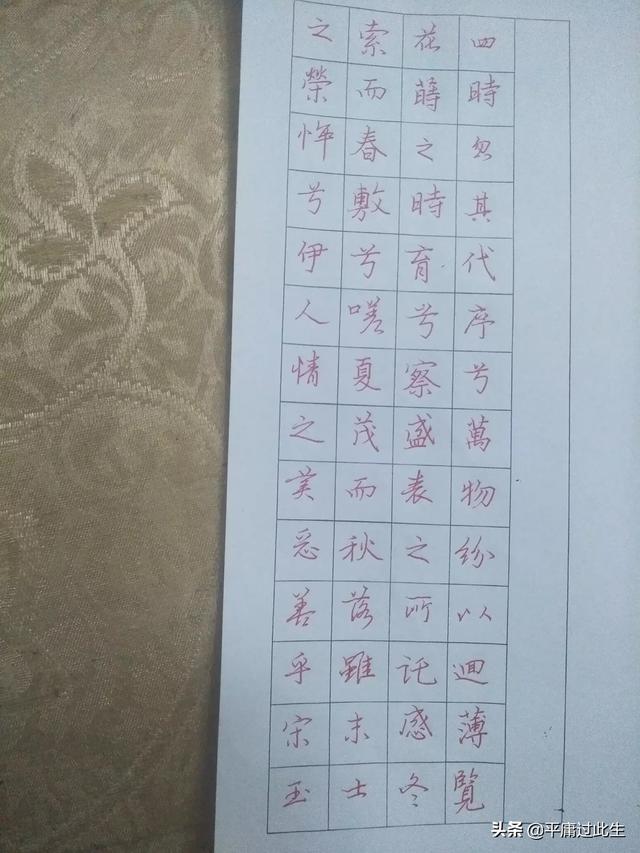 四時忽其代序兮萬物紛以迴薄覽
花蒔之時育兮察盛衰之所託感冬
索而春敷兮嗟夏茂而秋落雖末士
之榮忰兮伊人情之美惡善乎宋玉
头条 @平庸过此生